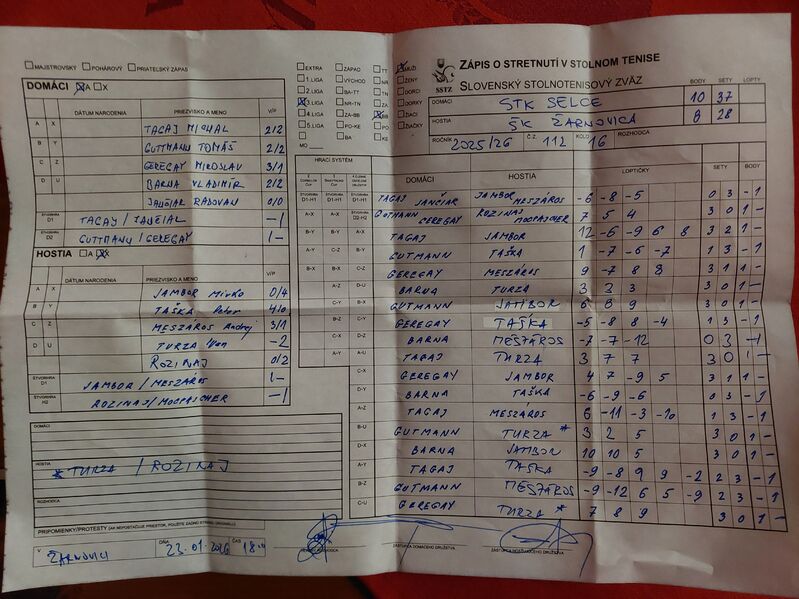 MAJSTROVSKÝ POHÁROVÝ PRIATEĽSKÝ ZÁPAS
DOMÁCI A X
DÁTUM NARODENIA PRIEZVISKO A MENO V/P
A X TAGAJ MICHAL 2/2
B Y GUTTMANN TOMÁŠ 2/2
C Z GEREGAY MIROSLAV 3/1
D U BARNA VLADIMÍR 2/2
JANČIAR RADOVAN 0/0
ŠTVORHRA D1 TAGAJ / JANČIAR -1
ŠTVORHRA D2 GUTTMANN / GEREGAY 1-
HOSTIA A X
DÁTUM NARODENIA PRIEZVISKO A MENO V/P
A X JAMBOR Mirko 0/4
B Y TAŠKA Peter 4/0
C Z MESZÁROS Andrej 3/1
D U TURZA Ivan -2
ROZINAJ 0/2
ŠTVORHRA JAMBOR / MESZÁROS 1-
ŠTVORHRA H2 ROZINAJ / MOCPAJCHER -1
DOMÁCI
HOSTIA
* TURZA / ROZINAJ
ROZHODCA
PRIPOMIENKY/PROTESTY (AK NEPOSTAČUJE PRIESTOR, POUŽITE ZADNÚ STRANU ORIGINÁLU)
V ŽARNOVICI DŇA 23.01.2026 ČAS 18.00
EXTRA ZÁPAD TT MUŽI
1.LIGA VÝCHOD NR ŽENY
2.LIGA BA-TT TN DORCI
3.LIGA NR-TN ZA DORKY
4.LIGA ZA-BB BB ŽIACI
5.LIGA PO-KE PO ŽIAČKY
BA KE
MO
SSTZ
ZÁPIS O STRETNUTÍ V STOLNOM TENISE
SLOVENSKÝ STOLNOTENISOVÝ ZVÄZ
BODY SETY LOPTY
DOMÁCI STK SELCE 10 37
HOSTIA ŠK ŽARNOVICA 8 28
ROČNÍK 2025/26 Č.Z. 112 KOLO 16 ROZHODCA
HRACÍ SYSTÉM DOMÁCI HOSTIA LOPTIČKY SETY BODY
TAGAJ JANČIAR JAMBOR MESZÁROS -6 -8 -5 0 3 -1
GUTMANN GEREGAY ROZINAJ MOCPAJCHER 7 5 4 3 0 1-
TAGAJ JAMBOR 12 -6 -9 6 8 3 2 1-
GUTMANN TAŠKA 1 -7 -6 -7 1 3 -1
GEREGAY MESZÁROS 9 -7 8 8 3 1 1-
BARNA TURZA 3 2 3 3 0 1-
GUTMANN JAMBOR 6 8 9 3 0 1-
GEREGAY TAŠKA -5 -8 8 -4 1 3 -1
BARNA MESZÁROS -7 -7 -12 0 3 -1
TAGAJ TURZA 3 7 7 3 0 1-
GEREGAY JAMBOR 4 7 -9 5 3 1 1-
BARNA TAŠKA -6 -9 -6 0 3 -1
TAGAJ MESZÁROS 6 -11 -3 -10 1 3 -1
GUTMANN TURZA * 3 2 5 3 0 1-
BARNA JAMBOR 10 10 5 3 0 1-
TAGAJ TAŠKA -9 -8 9 9 -2 2 3 -1
GUTMANN MESZÁROS -9 -12 6 5 -9 2 3 -1
GEREGAY TURZA * 7 8 9 3 0 1-
ZÁSTUPCA DOMÁCEHO DRUŽSTVA
ZÁSTUPCA HOSŤUJÚCEHO DRUŽSTVA